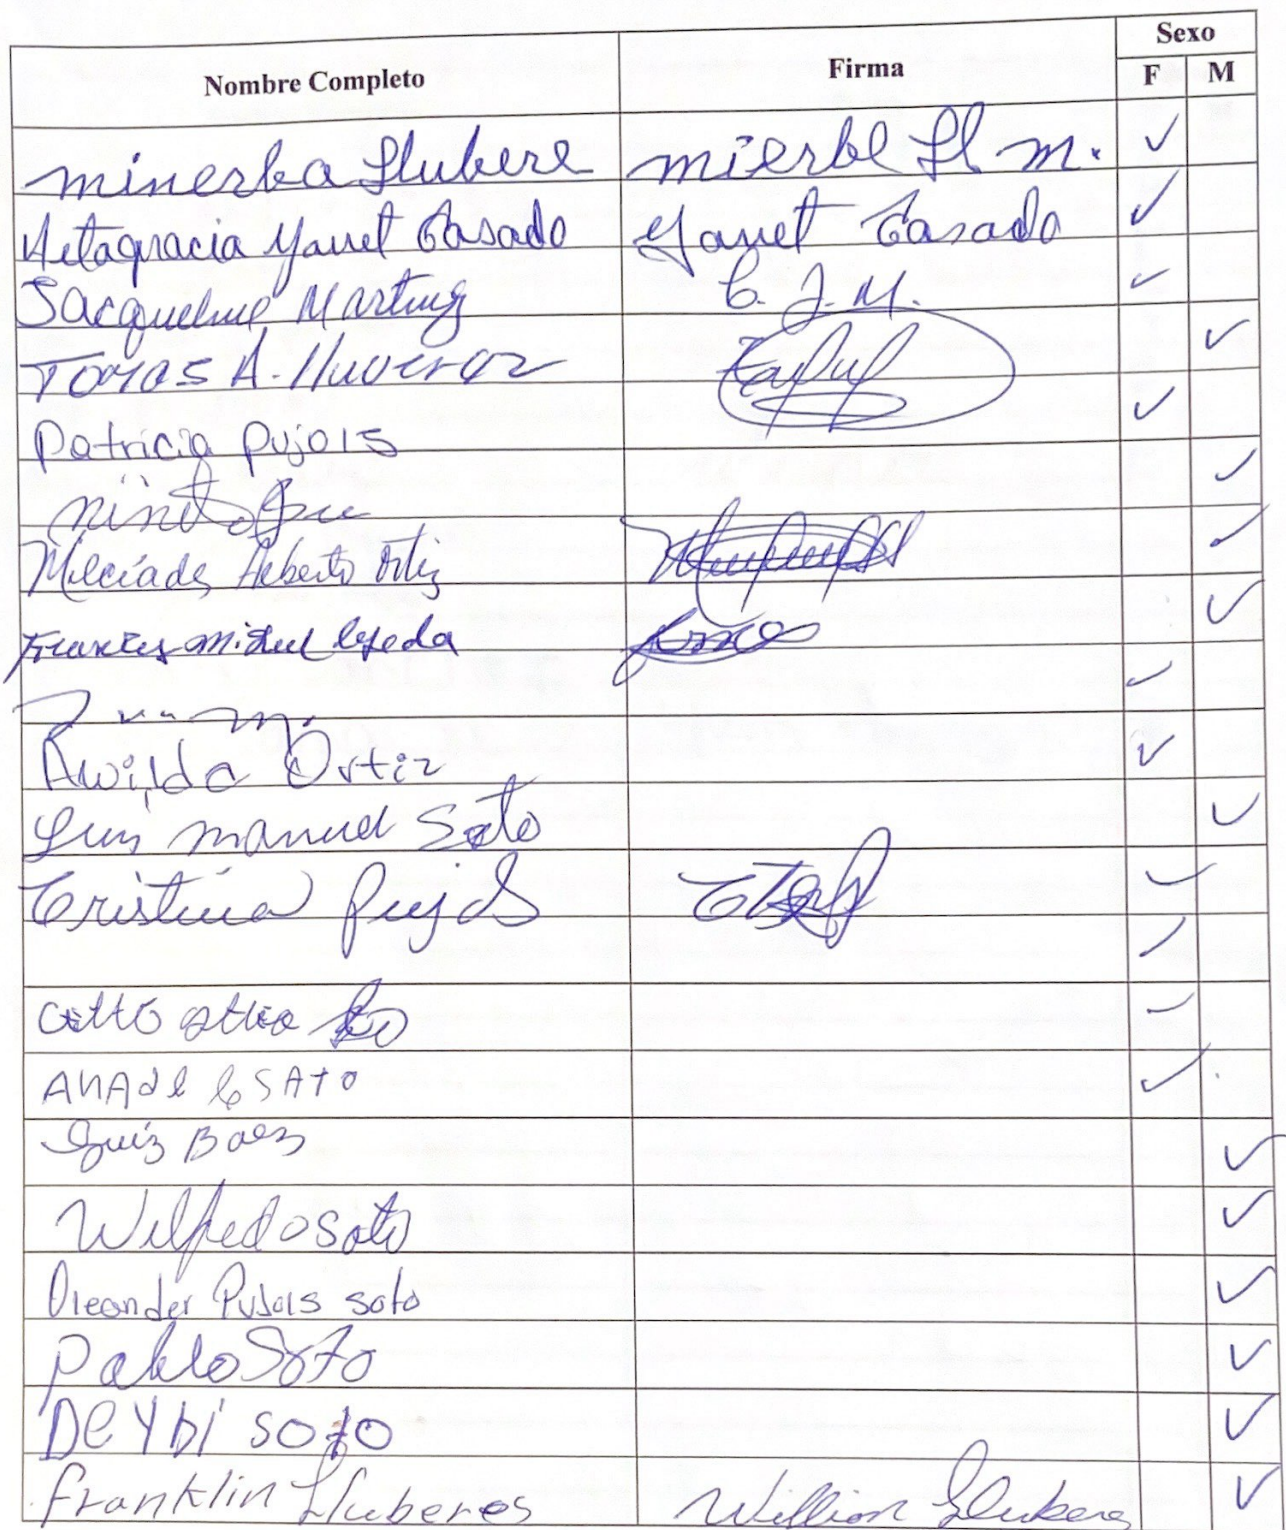 Sexo
Nombre Completo Firma F M
minerba Llubere mierbe Ll m.
Altagracia Yanet Casado Yanet Casado
Jacqueline Martinez C. J. M.
Tomas A. Lluveres
Patricia Pujols
Milciades Alberto Ortiz
miguel Cepeda
Awilda Ortiz
Luis manuel Soto
Cristina Pujols
SATO
Luiz Baez
Wilfredo soto
Oleander Pujols soto
Pablo Soto
DeYbi soto
Franklin Lluberes Willian Llubere